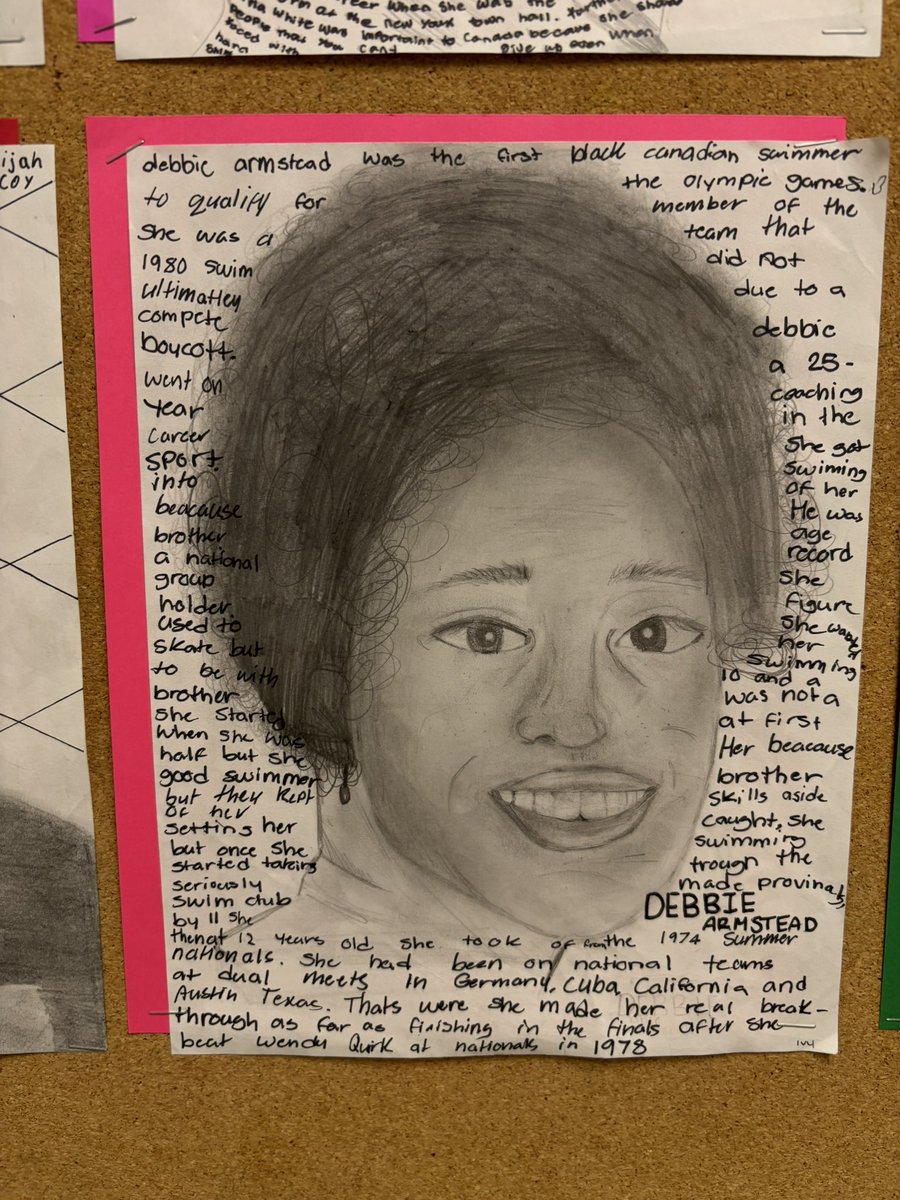 when she was the
at the new york town hall.
White was important to Canada because she
People that you cant give up even when
faced with
hard
ijah
coy
debbie armstead was the first black canadian swimmer
to qualify for the olympic games.
She was a member of the
1980 swim team that
ultimatley did not
compete due to a
boycott. debbie
went on a 25-
year coaching
career in the
sport. She got
into swiming
beacause of her
brother He was
a national age
group record
holder. She
used to figure
skate but she wanted
to be with her
brother swimming
She started
When she was 10 and a
half but she was not a
good swimmer at first
but they kept Her beacause
of her brother
setting her skills aside
but once she caught, she
started taking swimming
seriously trough the
swim club made provinals
by 11 she
DEBBIE
ARMSTEAD
then at 12 years old she took of from the 1974 Summer
nationals. She had been on national teams
at dual meets in Germany, Cuba, California and
Austin Texac. Thats were she made her real break-
through as far as finishing in the finals after she
beat Wendy Quirk at nationals in 1978
Ivy